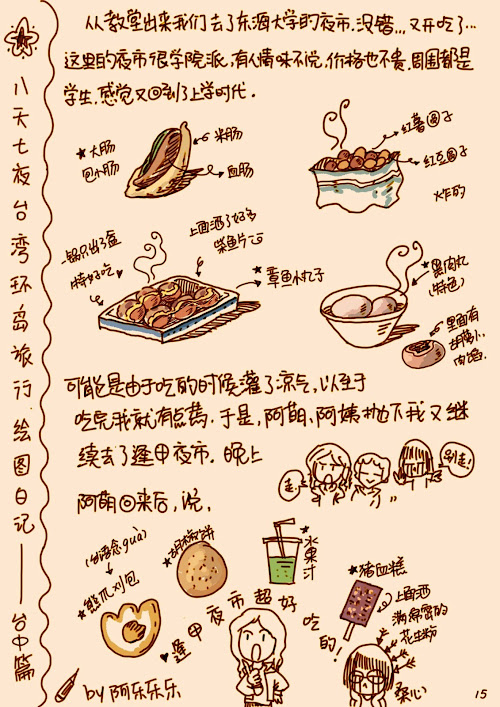 八天七夜台湾环岛旅行绘图日记——台中篇
从教堂出来我们去了东海大学的夜市.没错...又开吃了...
这里的夜市很学院派.有人情味不说,价格也不贵.周围都是
学生.感觉又回到了上学时代.
★大肠
包小肠
米肠
血肠
红薯圆子
红豆圆子
炸的
特好吃♥
上面洒了好多
柴鱼片
★章鱼小丸子
(特色)
里面有
胡萝卜
肉馅.
可能是由于吃的时候灌了凉气,以至于
吃完我就有点蔫.于是,阿萌、阿姨抛下我又继
续去了逢甲夜市.晚上
阿萌回来后,说,
走!
别走!
(台语念guà)
★熊爪刈包
★胡椒饼
★水果汁
★猪血糕
上面洒
满绵密的
花生粉
♥逢甲夜市超好吃的!
桑心
by阿乐乐乐
15